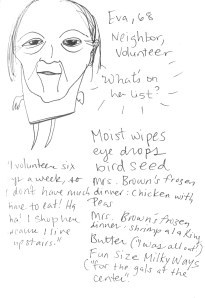 Eva, 68
Neighbor,
Volunteer
"What's on
her list?"
Moist wipes
eye drops
bird seed
Mrs. Brown's frozen
dinner: chicken with
Peas
Mrs. Brown's frozen
dinner - shrimp a la King
Butter ("I was all out")
Fun Size Milky Ways
("for the gals at the
center."
"I volunteer six
a week, so
I don't have much
time to eat! Ha
ha! I shop here
because I live
upstairs."